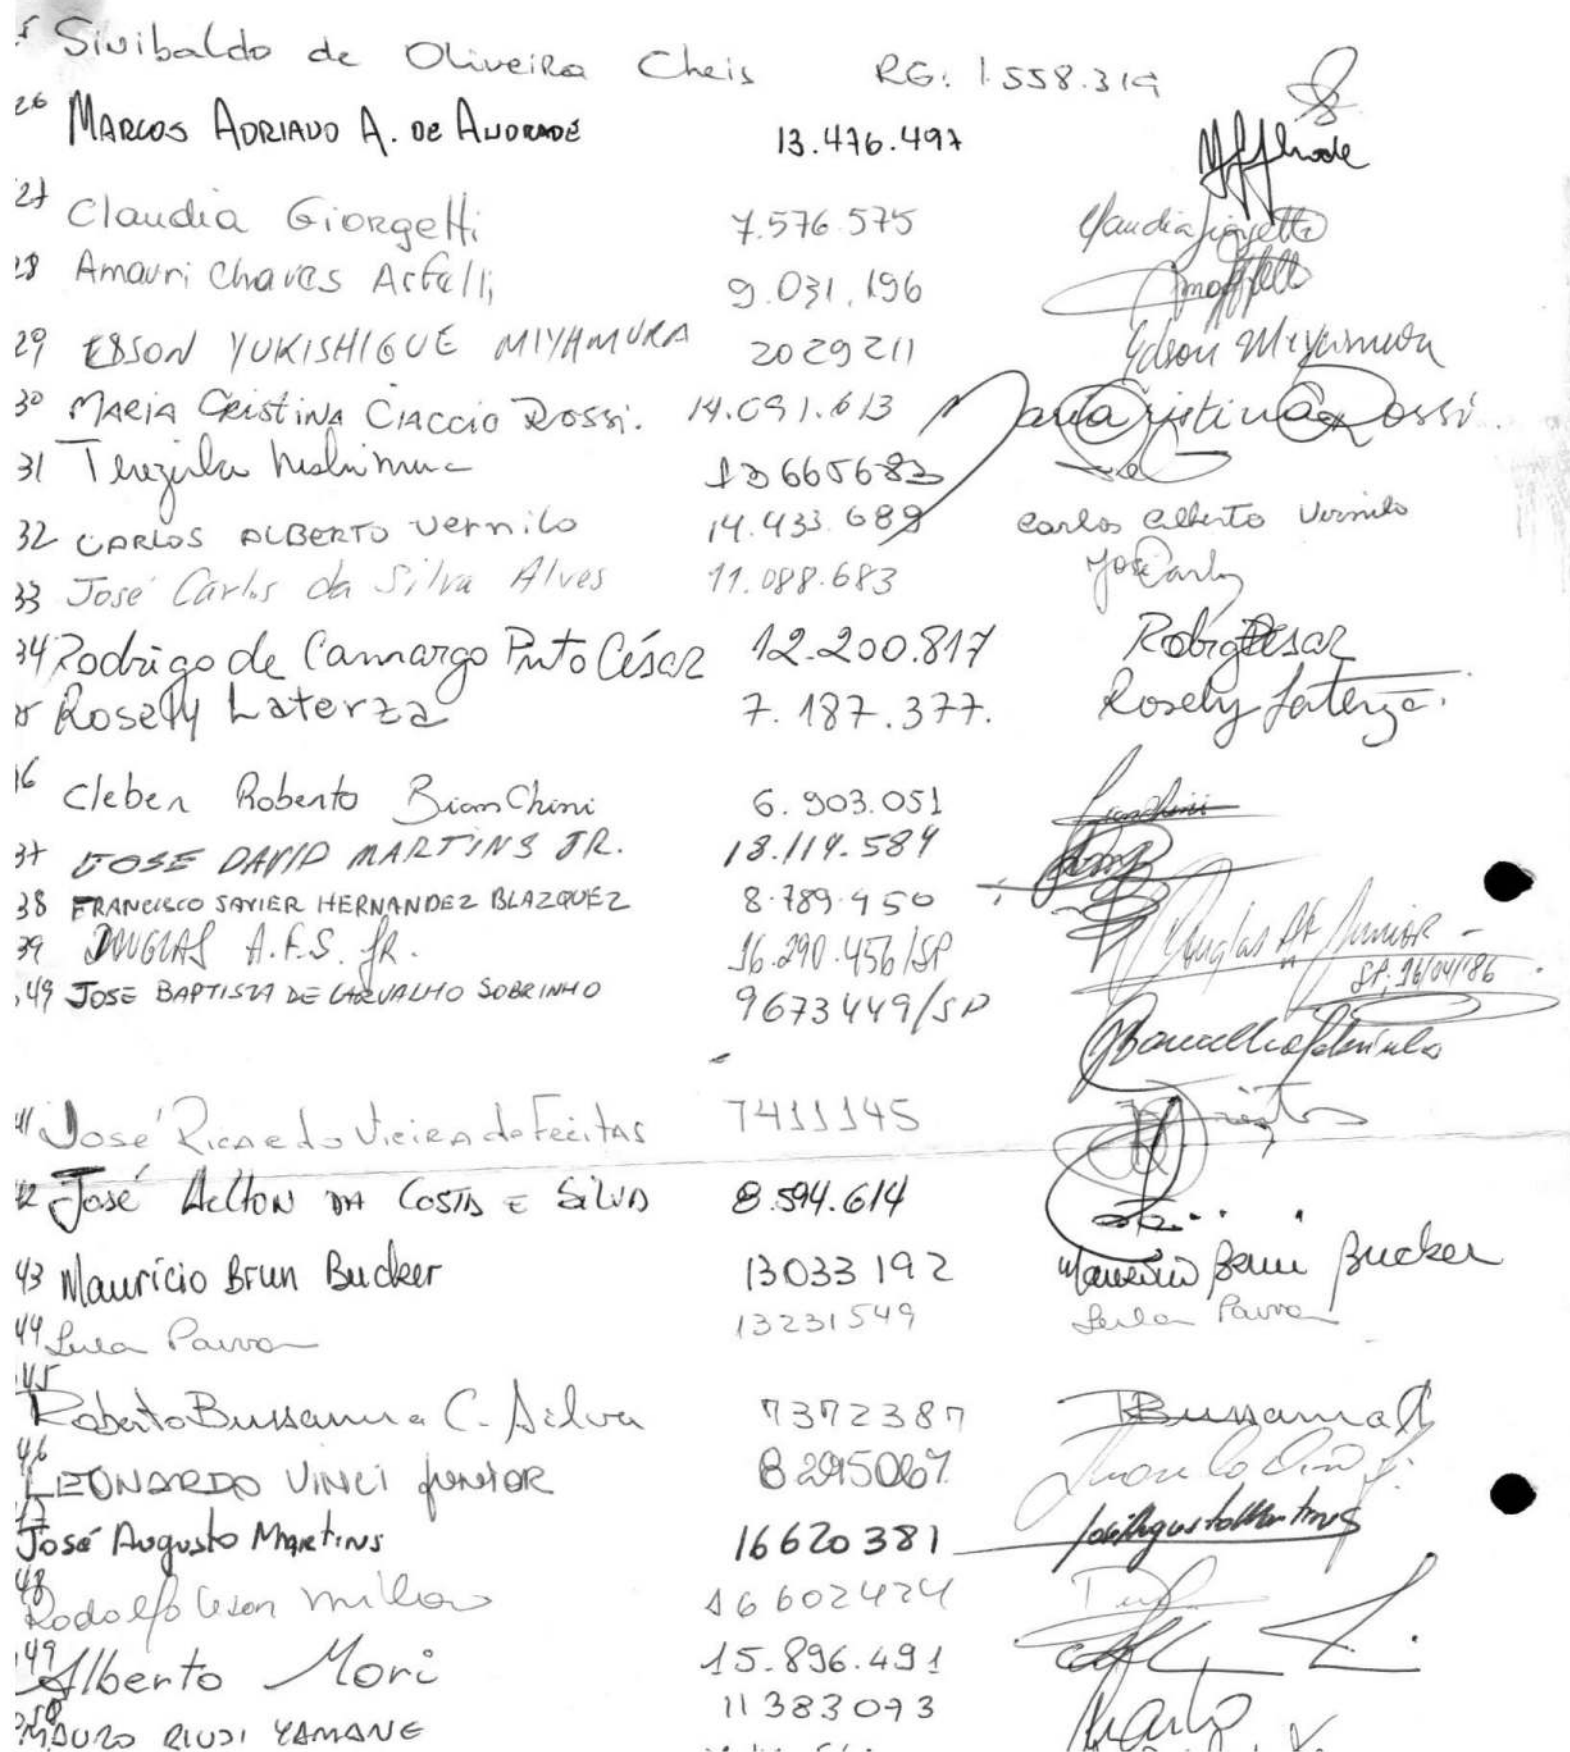 Sinibaldo de Oliveira Cheis RG: 1.558.319
26 MARCOS ADRIANO A. DE ANDRADE 13.476.497
27 Claudia Giorgetti 7.576.575 Claudia Giorgetti
28 Amauri Chaves Arfelli 9.031.196
29 EDSON YUKISHIGUE MIYAMURA 2029211 Edson Miyamura
30 MARIA CRISTINA CIACCIO ROSSI. 14.091.613 Maria Cristina Rossi.
31 13665683
32 CARLOS ALBERTO Vernilo 14.433.689 Carlos Alberto Vernilo
33 José Carlos da Silva Alves 11.088.683 José Carlos
34 Rodrigo de Camargo Pinto César 12.200.817 Rodrigo César
Rosely Laterza 7.187.377. Rosely Laterza.
Cleber Roberto Bianchini 6.903.051 Bianchini
37 JOSE DAVID MARTINS JR. 18.114.584
38 FRANCISCO SAVIER HERNANDEZ BLAZQUEZ 8.789.450
39 DOUGLAS A.F.S. JR. 16.290.456/SP Douglas AF Junior
SP, 16/04/86
49 JOSE BAPTISTA DE CARVALHO SOBRINHO 9673449/SP
41 José Ricardo Vieira de Freitas 7411145
42 José Aelton DA COSTA E SILVA 8.594.614
43 Mauricio Brun Bucker 13033192 Mauricio Brun Bucker
44 Paiva 13231549 Paiva
45
Roberto Bussamra C. Silva 7372387 Bussamra
46
LEONARDO VINCI JUNIOR 8295067
47
José Augusto Martins 16620381 José Augusto Martins
48
Rodolfo 16602424
49
Alberto Mori 15.896.491
50
MAURO RIUDI YAMANE 11383093